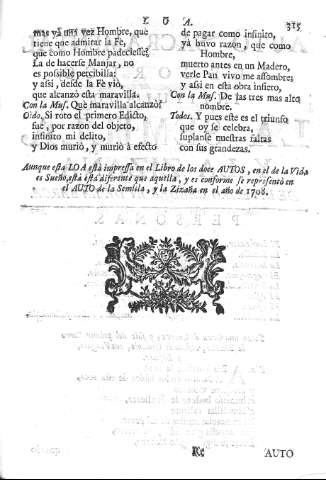 L O A.
315
mas yà una vez Hombre, que
tiene que admirar la Fè,
que como Hombre padeciesse?
La de hacerse Manjar, no
es posible percibilla:
y assi, desde la Fè viò,
que alcanzò esta maravilla.
Con la Mus. Què maravilla alcanzò?
Oido. Si roto el primero Edicto,
fuè, por razon del objeto,
infinito mi delito,
y Dios muriò, y muriò à efecto
de pagar como infinito,
yà huvo razon, que como
Hombre,
muerto antes en un Madero,
verle Pan vivo me assombre;
y assi en esta obra infiero,
Con la Mus. De las tres mas alto
nombre.
Todos. Y pues este es el triunfo
que oy se celebra,
suplanse nuestras faltas
con sus grandezas.
Aunque esta LOA està impressa en el Libro de los doce AUTOS, en el de la Vida
es Sueño, està esta diferente que aquella, y es conforme se representò en
el AUTO de la Semilla, y la Zizaña en el año de 1708.
AUTO